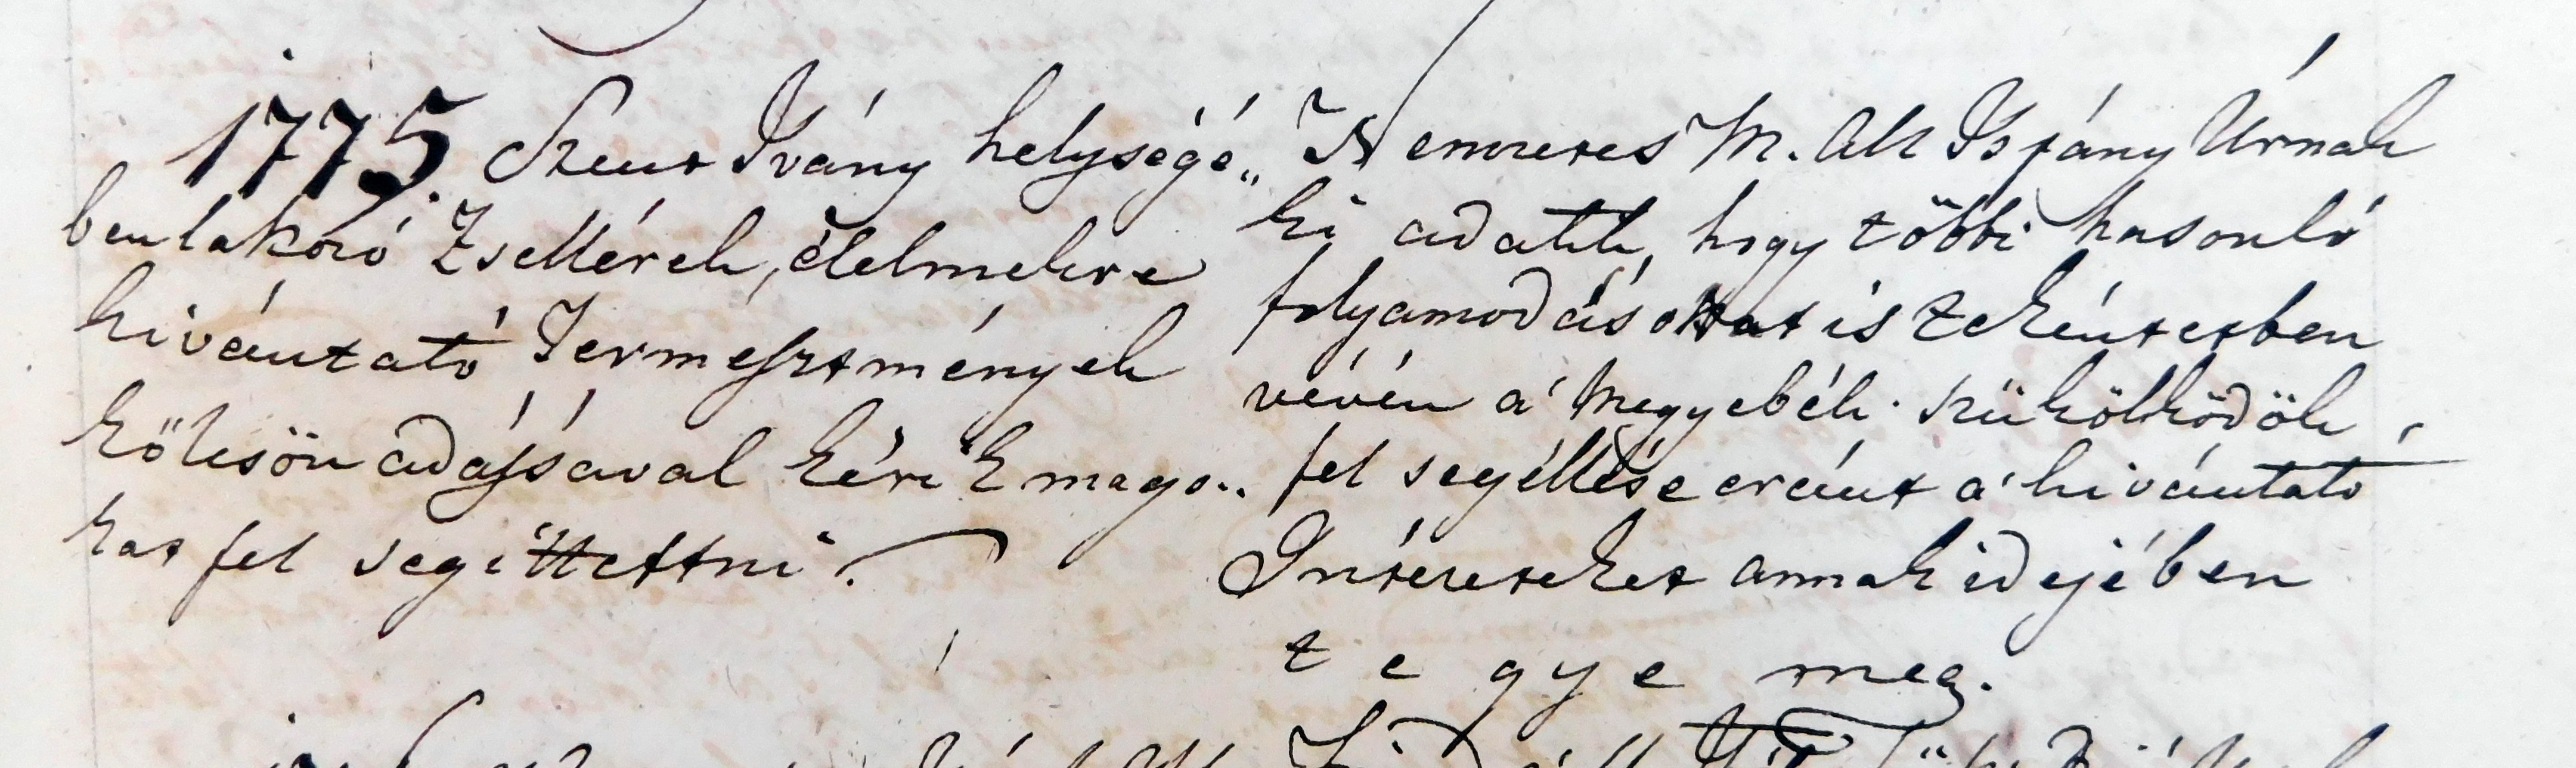 1775. Szent Ivány helységé„
ben lakozó Zsellérek, élelmekre
kivántató Termesztmények
költsön adássával kérik mago„
kat fel segíttettni.
Nemzetes M. Al Ispány Úrnak
ki adatik, hogy többi hasonló
folyamodásokat is tekéntetben
vévén a' Megyebéli szükölködök
fel segéllése eránt a' kivántató
Intézeteket annak idejében
tegye meg.